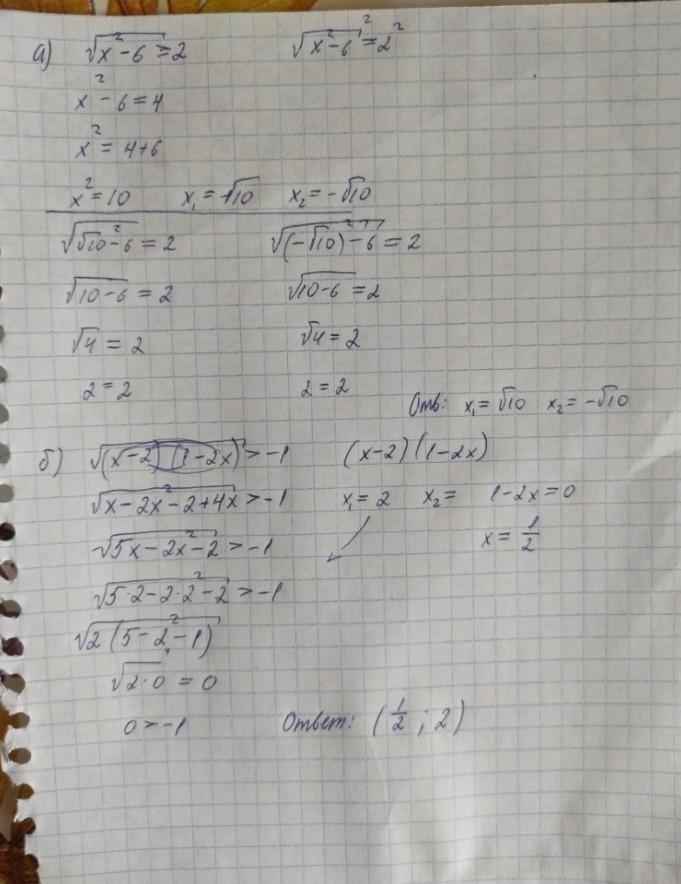 а) √(x² - 6) = 2 √(x² - 6)² = 2²
x² - 6 = 4
x² = 4 + 6
x² = 10 x₁ = √10 x₂ = -√10
√(√10² - 6) = 2 √((-√10)² - 6) = 2
√(10 - 6) = 2 √(10 - 6) = 2
√4 = 2 √4 = 2
2 = 2 2 = 2
Отв: x₁ = √10 x₂ = -√10
б) √((x - 2)(1 - 2x)) > -1 (x - 2)(1 - 2x)
√(x - 2x² - 2 + 4x) > -1 x₁ = 2 x₂ = 1 - 2x = 0
√(5x - 2x² - 2) > -1 x = 1/2
√(5·2 - 2·2² - 2) > -1
√(2(5 - 2² - 1))
√(2·0) = 0
0 > -1 Ответ: (1/2 ; 2)